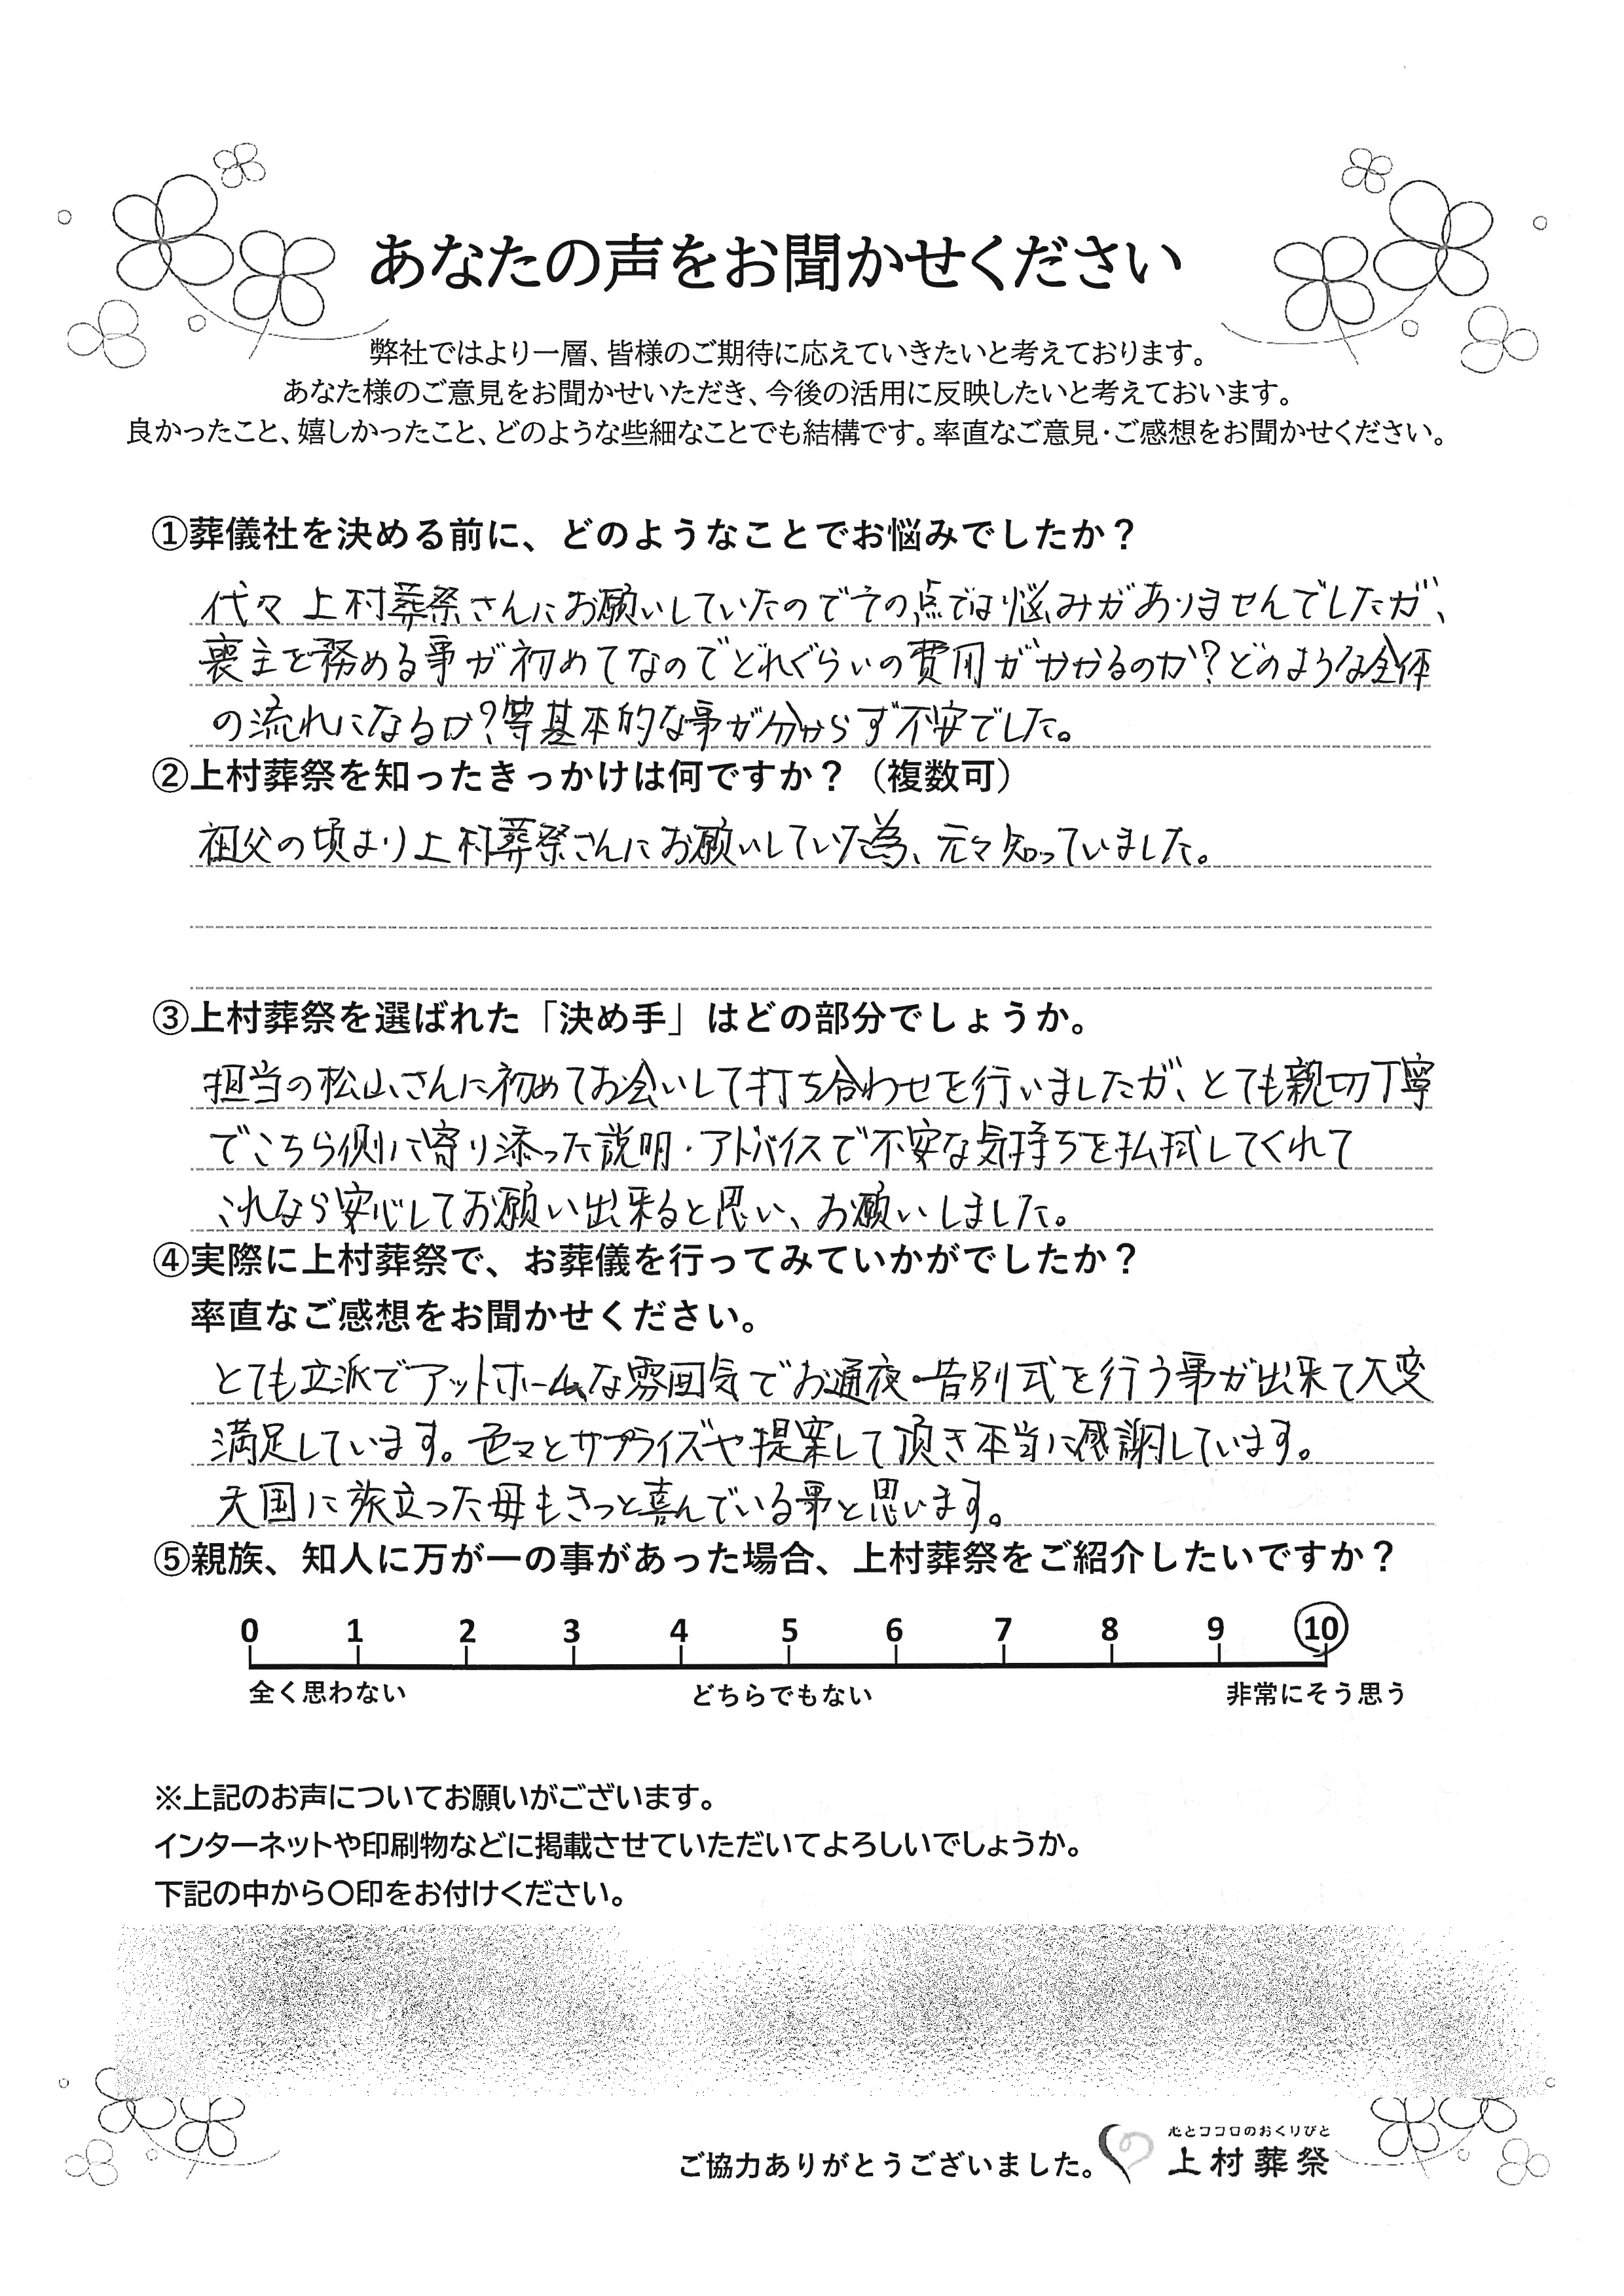 あなたの声をお聞かせください
弊社ではより一層、皆様のご期待に応えていきたいと考えております。
あなた様のご意見をお聞かせいただき、今後の活用に反映したいと考えておいます。
良かったこと、嬉しかったこと、どのような些細なことでも結構です。率直なご意見・ご感想をお聞かせください。
①葬儀社を決める前に、どのようなことでお悩みでしたか？
代々上村葬祭さんにお願いしていたのでその点では悩みがありませんでしたが、
喪主を務める事が初めてなのでどれぐらいの費用がかかるのか？どのような全体
の流れになるか？等基本的な事が分からず不安でした。
②上村葬祭を知ったきっかけは何ですか？（複数可）
祖父の頃より上村葬祭さんにお願いしていた為、元々知っていました。
③上村葬祭を選ばれた「決め手」はどの部分でしょうか。
担当の松山さんに初めてお会いして打ち合わせを行いましたが、とても親切丁寧
でこちら側に寄り添った説明・アドバイスで不安な気持ちを払拭してくれて
これなら安心してお願い出来ると思い、お願いしました。
④実際に上村葬祭で、お葬儀を行ってみていかがでしたか？
率直なご感想をお聞かせください。
とても立派でアットホームな雰囲気でお通夜・告別式を行う事が出来て大変
満足しています。色々とサプライズや提案して頂き本当に感謝しています。
天国に旅立った母もきっと喜んでいる事と思います。
⑤親族、知人に万が一の事があった場合、上村葬祭をご紹介したいですか？
0 1 2 3 4 5 6 7 8 9 10
全く思わない どちらでもない 非常にそう思う
※上記のお声についてお願いがございます。
インターネットや印刷物などに掲載させていただいてよろしいでしょうか。
下記の中から〇印をお付けください。
心とココロのおくりびと
ご協力ありがとうございました。 上村葬祭